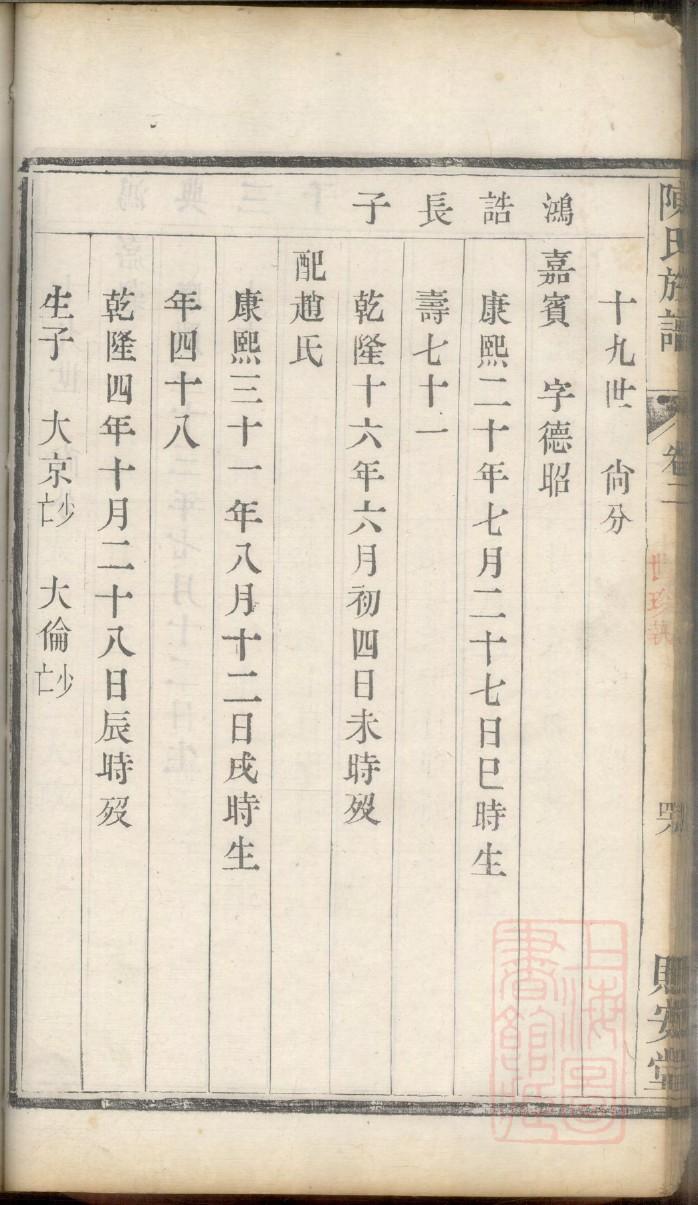 陳氏族譜 卷二
十九世 尙分
鴻誥長子
嘉賓 字德昭
康熙二十年七月二十七日巳時生
壽七十一
乾隆十六年六月初四日未時歿
配趙氏
康熙三十一年八月十二日戌時生
年四十八
乾隆四年十月二十八日辰時歿
生子 大京少亡 大倫少亡
上海圖書館藏